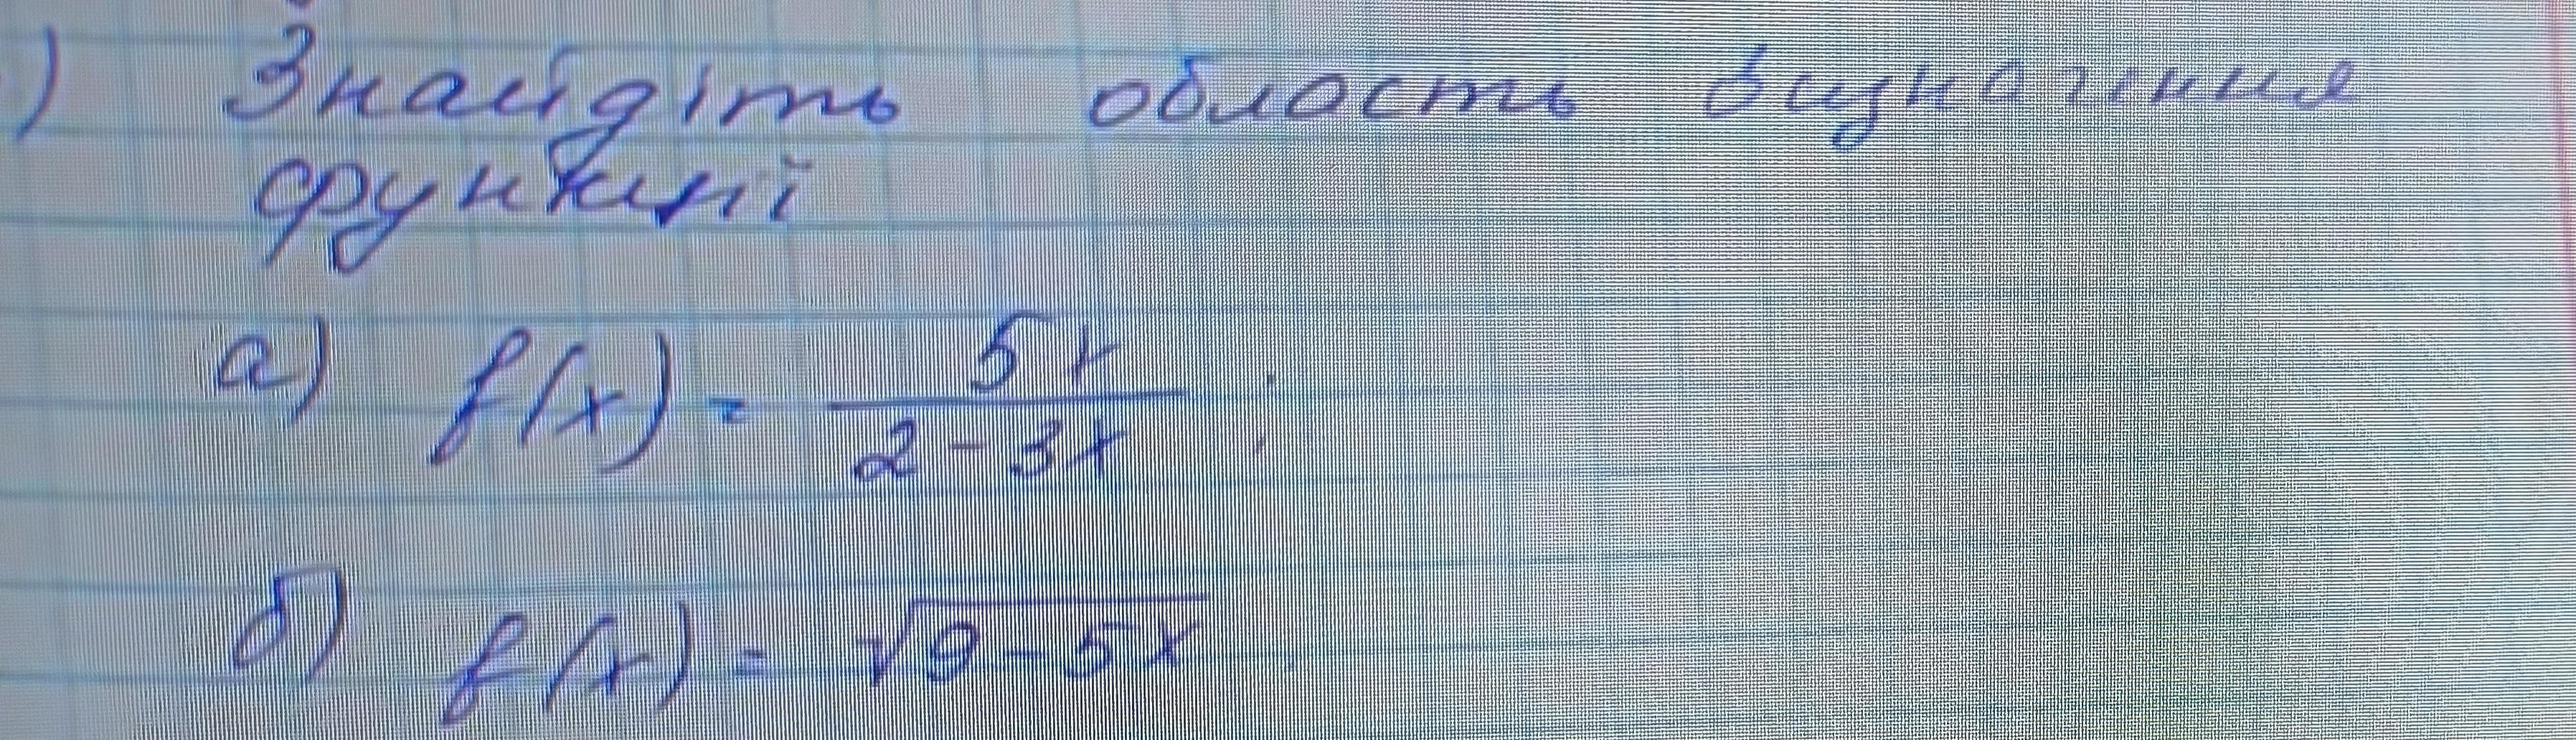 ) Знайдіть область визначення
функції
а) f(x) = 5x / (2 - 3x) ;
б) f(x) = √(9 - 5x)